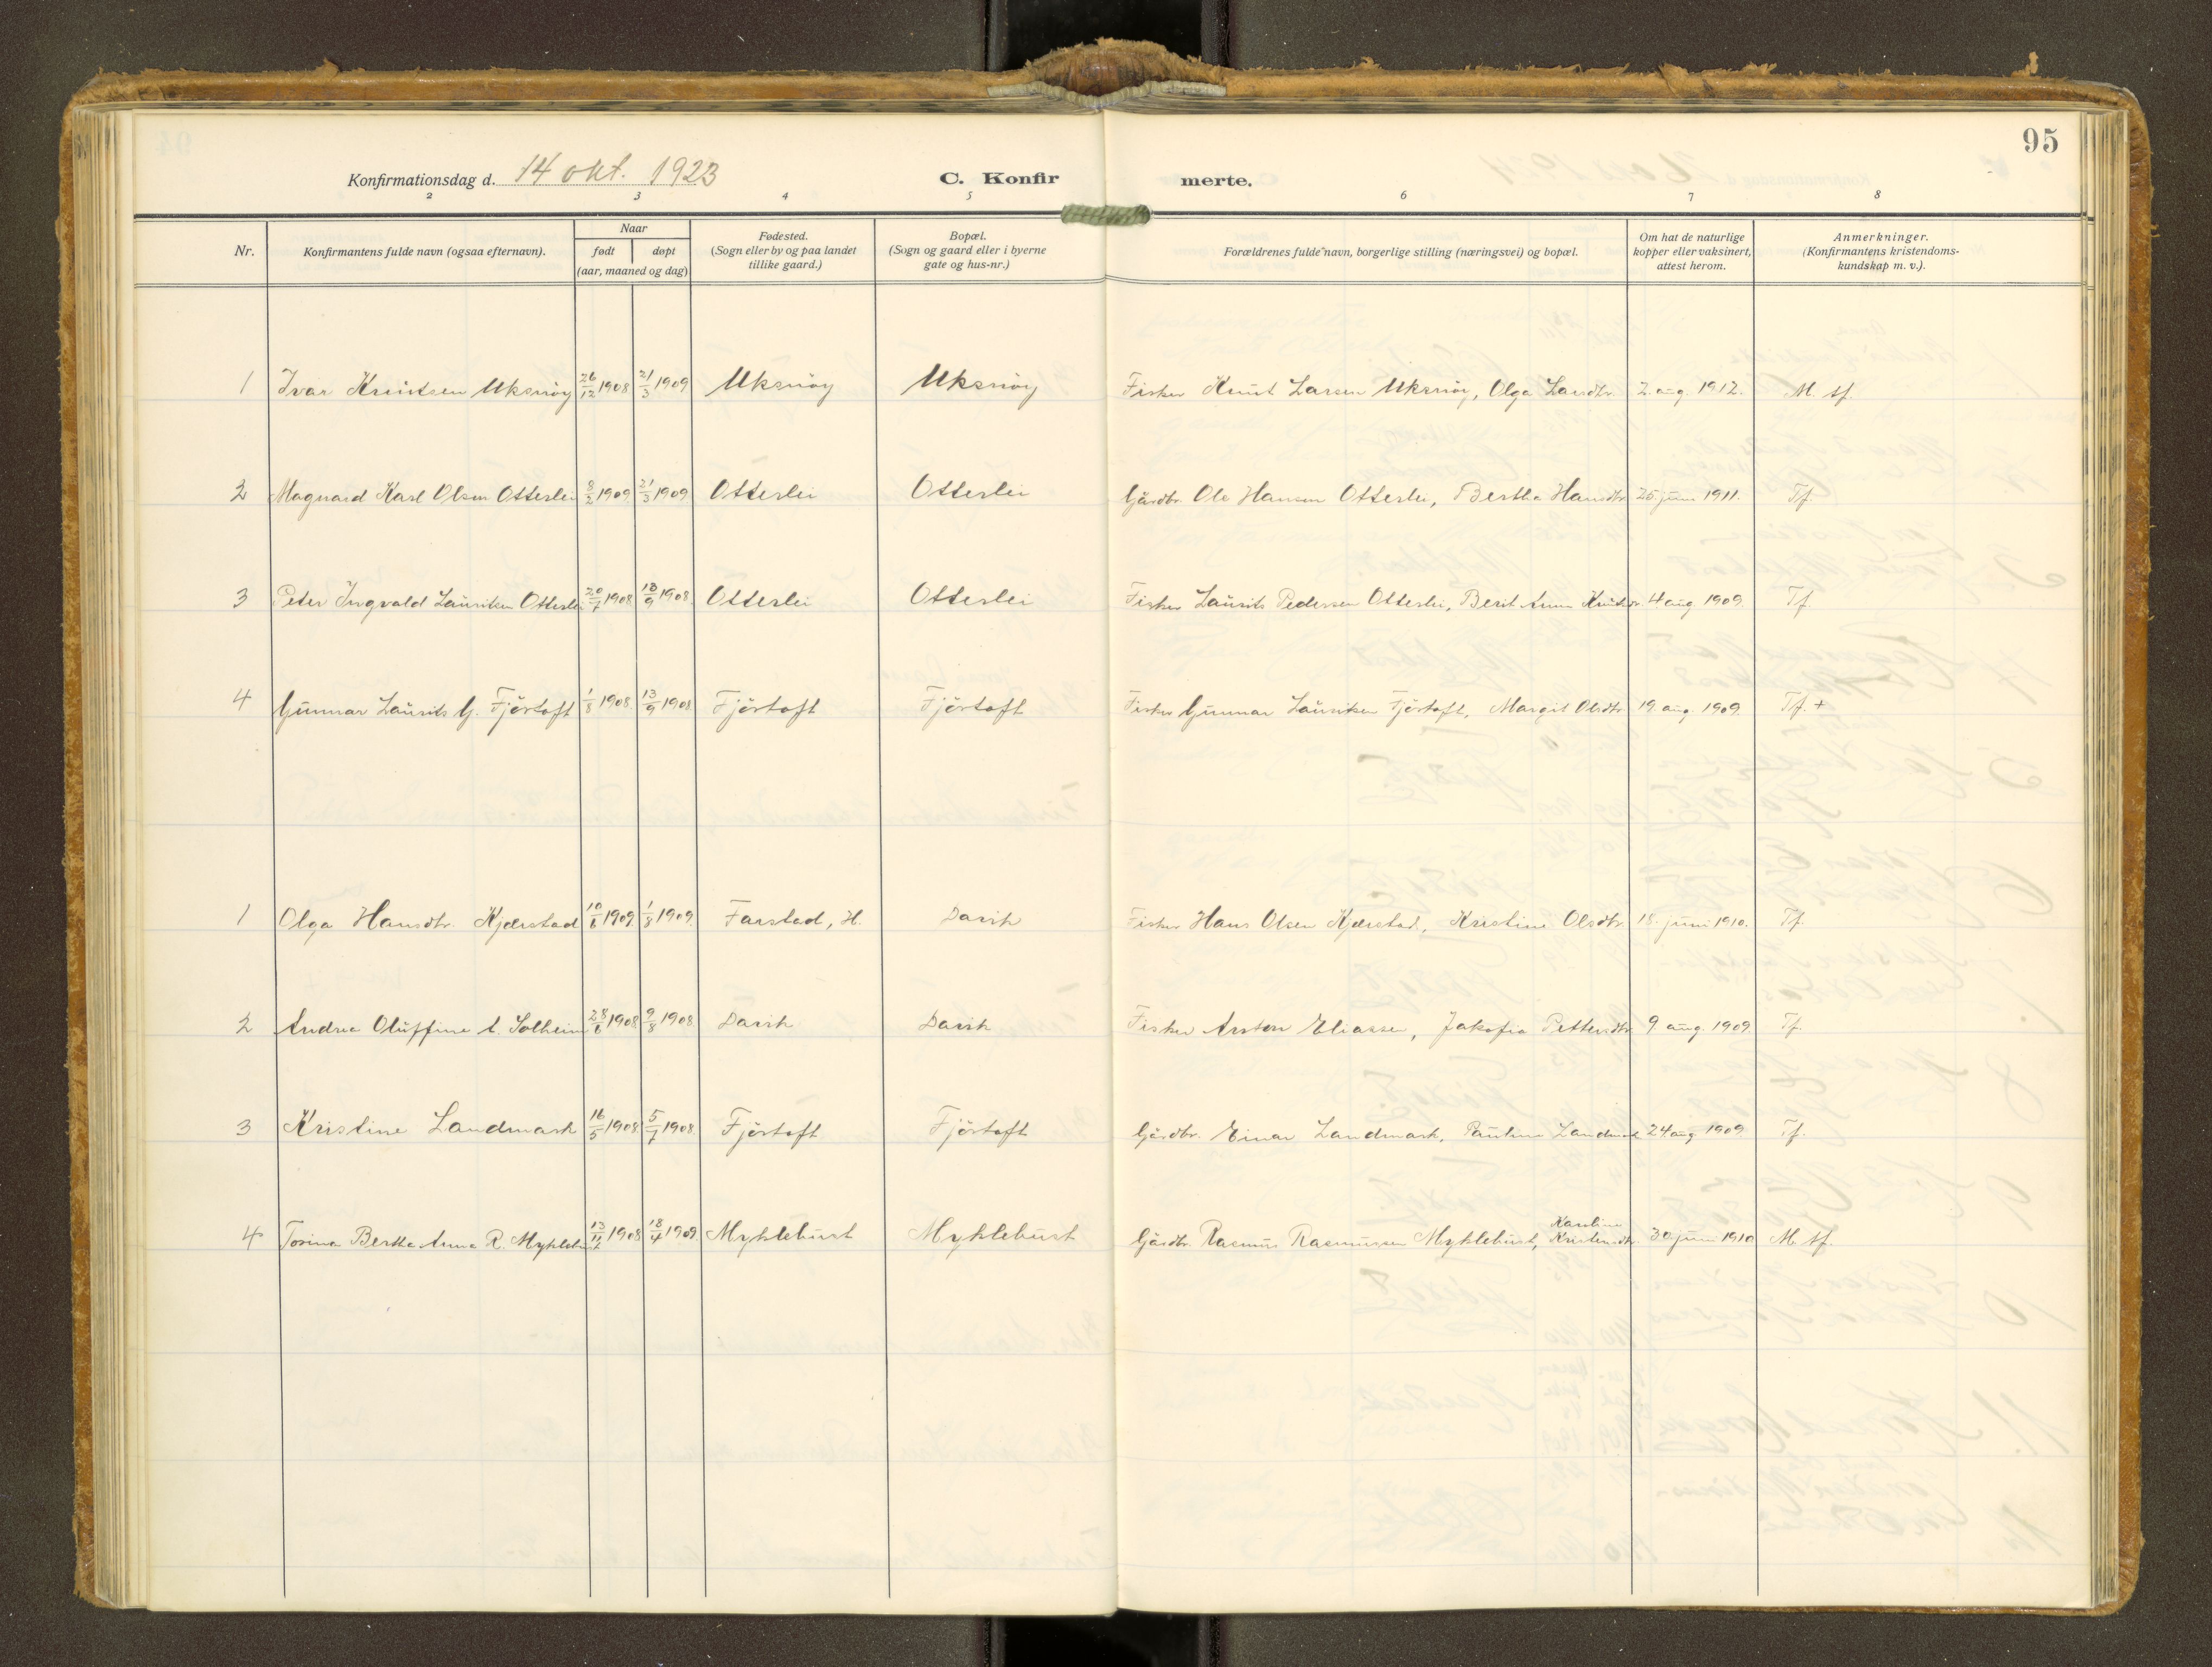 95
Konfirmationsdag d. 14 okt. 1923
C. Konfirmerte.
2 3 4 5 6 7 8
Nr. Konfirmantens fulde navn (ogsaa efternavn). Naar født døpt (aar, maaned og dag) Fødested. (Sogn eller by og paa landet tillike gaard.) Bopæl. (Sogn og gaard eller i byerne gate og hus-nr.) Forældrenes fulde navn, borgerlige stilling (næringsvei) og bopæl. Om hat de naturlige kopper eller vaksinert, attest herom. Anmerkninger. (Konfirmantens kristendoms- kundskap m. v.).
1 Ivar Knutsen Uksnöy 26/12 1908 21/3 1909 Uksnöy Uksnöy Fisker Knut Larsen Uksnöy, Olga Larsdtr. 2. aug. 1912. M. tf.
2 Magnard Karl Olsen Otterlei 8/2 1909 21/3 1909 Otterlei Otterlei Gårdbr. Ole Hansen Otterlei, Bertha Hansdtr. 25. juni 1911. Tf.
3 Peter Ingvald Lauritsen Otterlei 20/7 1908 13/9 1908 Otterlei Otterlei Fisker Laurits Pedersen Otterlei, Berit Anna Knutsdtr. 4 aug 1909. Tf.
4 Gunnar Laurits G. Fjörtoft 1/8 1908. 13/9 1908 Fjörtoft Fjörtoft Fisker Gunnar Lauritsen Fjörtoft, Margit Olsdtr. 19. aug. 1909. Tf. +
1 Olga Hansdtr. Kjærstad 10/6 1909. 1/8 1909. Farstad, H. Davik Fisker Hans Olsen Kjærstad, Kristine Olsdtr. 18. juni 1910. Tf.
2 Andrea Oluffine A. Solheim 28/6 1908 9/8 1908 Davik Davik Fisker Arston Eliassen, Jakofia Pettersdtr. 9 aug. 1909 Tf.
3 Kristine Landmark 16/5 1908. 5/7 1908. Fjörtoft Fjörtoft Gårdbr. Einar Landmark, Pauline Landmark 24. aug. 1909. Tf.
4 Torina Bertha Anna R. Myklebust 13/11 1908 18/4 1909. Myklebust Myklebust Gårdbr. Rasmus Rasmussen Myklebust, Karoline Kristensdtr. 30. juni 1910 M. tf.